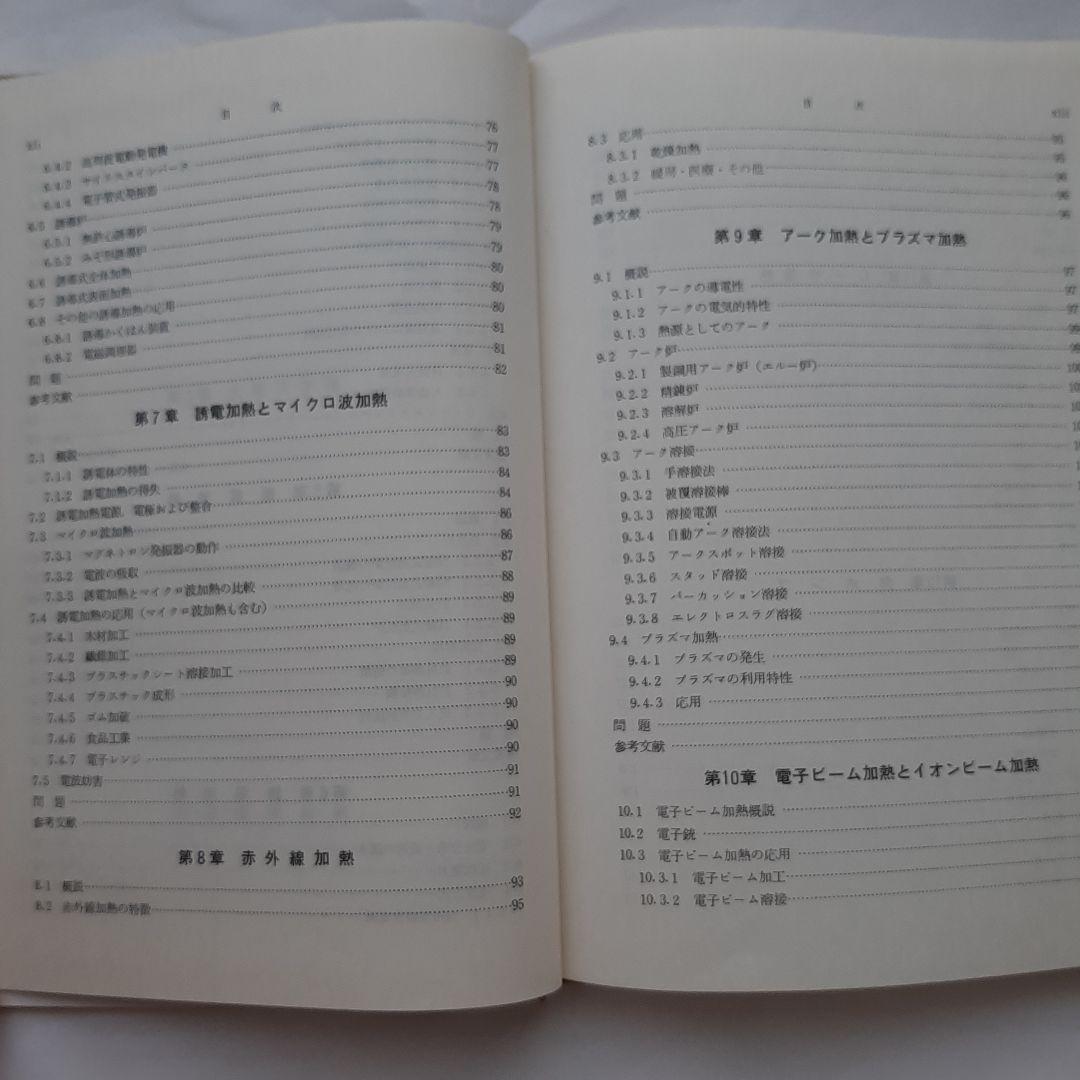 目 次
6.4.2 高周波電動発電機 76
6.4.3 サイリスタインバータ 77
6.4.4 電子管式発振器 77
6.5 誘導炉 78
6.5.1 無鉄心誘導炉 78
6.5.2 みぞ形誘導炉 79
6.6 誘導式全体加熱 79
6.7 誘導式表面加熱 80
6.8 その他の誘導加熱の応用 80
6.8.1 誘導かくはん装置 80
6.8.2 電磁調理器 81
問題 81
参考文献 82
第7章 誘電加熱とマイクロ波加熱
7.1 概説 83
7.1.1 誘電体の特性 83
7.1.2 誘電加熱の得失 84
7.2 誘電加熱電源,電極および整合 84
7.3 マイクロ波加熱 86
7.3.1 マグネトロン発振器の動作 86
7.3.2 電波の吸収 87
7.3.3 誘電加熱とマイクロ波加熱の比較 88
7.4 誘電加熱の応用(マイクロ波加熱も含む) 89
7.4.1 木材加工 89
7.4.2 繊維加工 89
7.4.3 プラスチックシート溶接加工 89
7.4.4 プラスチック成形 90
7.4.5 ゴム加硫 90
7.4.6 食品工業 90
7.4.7 電子レンジ 90
7.5 電波妨害 91
問題 91
参考文献 92
第8章 赤外線加熱
8.1 概説 93
8.2 赤外線加熱の特徴 95
目 次
8.3 応用 95
8.3.1 乾燥加熱 95
8.3.2 暖房・医療・その他 96
問題 96
参考文献 96
第9章 アーク加熱とプラズマ加熱
9.1 概説 97
9.1.1 アークの導電性 97
9.1.2 アークの電気的特性 97
9.1.3 熱源としてのアーク
9.2 アーク炉
9.2.1 製鋼用アーク炉(エルー炉)
9.2.2 精錬炉
9.2.3 溶解炉
9.2.4 高圧アーク炉
9.3 アーク溶接
9.3.1 手溶接法
9.3.2 被覆溶接棒
9.3.3 溶接電源
9.3.4 自動アーク溶接法
9.3.5 アークスポット溶接
9.3.6 スタッド溶接
9.3.7 パーカッション溶接
9.3.8 エレクトロスラグ溶接
9.4 プラズマ加熱
9.4.1 プラズマの発生
9.4.2 プラズマの利用特性
9.4.3 応用
問題
参考文献
第10章 電子ビーム加熱とイオンビーム加熱
10.1 電子ビーム加熱概説
10.2 電子銃
10.3 電子ビーム加熱の応用
10.3.1 電子ビーム加工
10.3.2 電子ビーム溶接